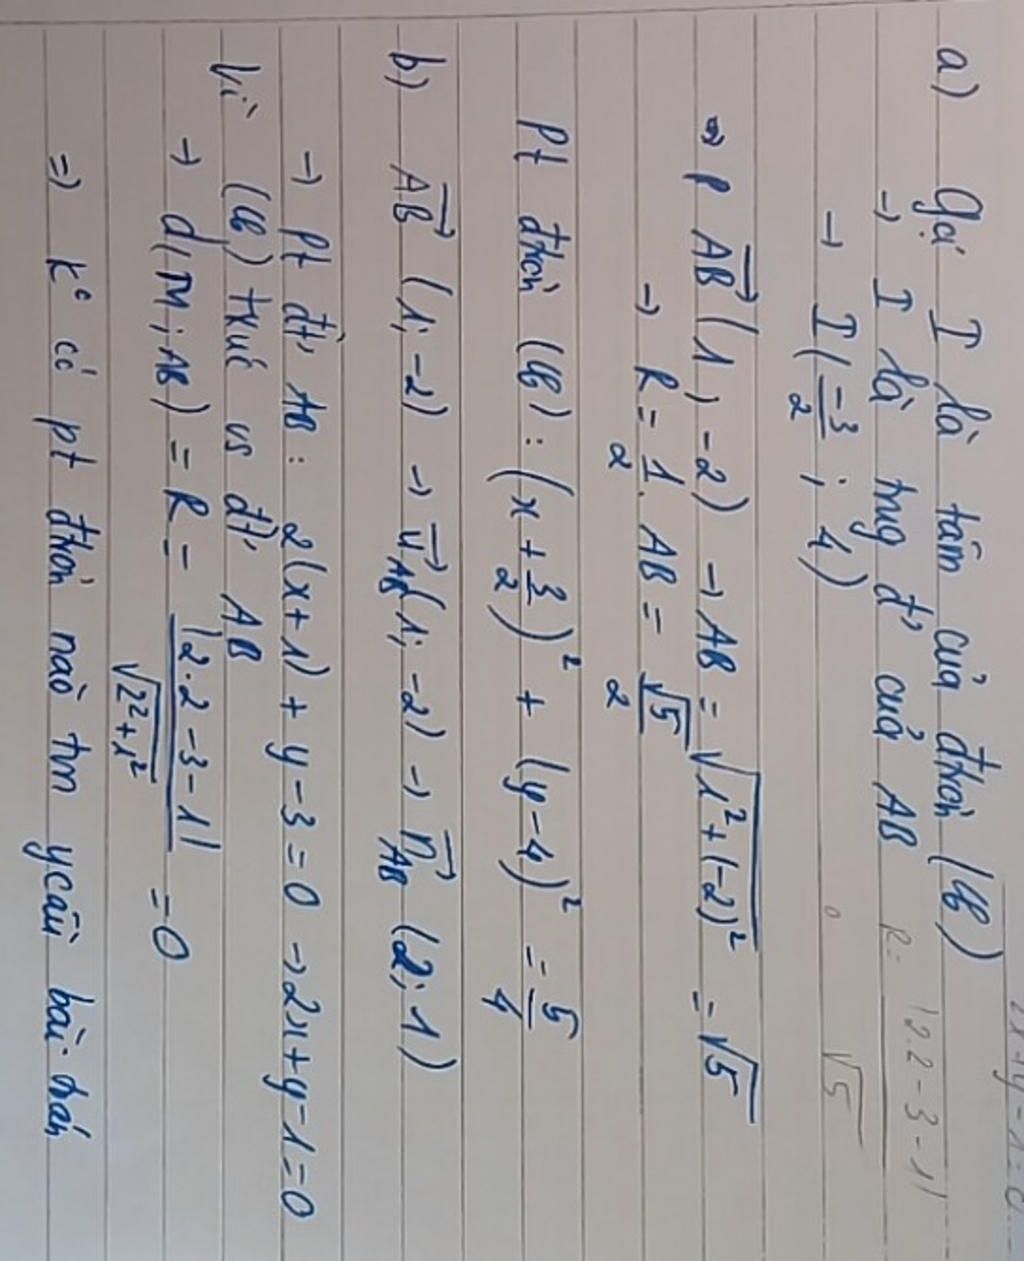 a) Gọi I là tâm của đtròn (C)
→ I là trug đ' của AB
→ I(-3/2 ; 4)
→ AB(1, -2) → AB = √1²+(-2)² = √5
→ R = 1/2 . AB = √5/2
Pt đtròn (C) : (x + 3/2)² + (y-4)² = 5/4
b) AB (1; -2) → u AB(1; -2) → n AB (2; 1)
→ pt đt' AB : 2(x+1) + y-3=0 → 2x+y-1=0
Vì (C) txúc vs đt' AB
→ d(M; AB) = R = |2.2-3-1|/√2²+1² = 0
=) K° có pt đtròn nào tm ycầu bài toán
2x+y-1=0
R= |2.2-3-1|
√5